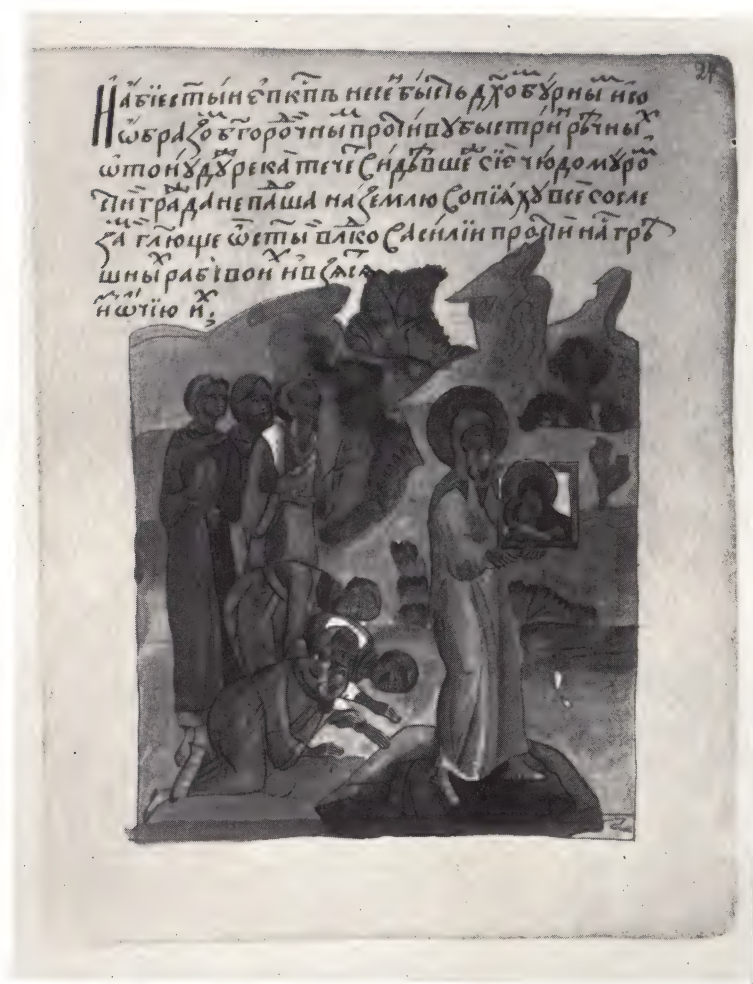 24
И абїе с҃тыи еп҃кпъ несе́нъ бысть дх҃о́ бу́рны и со
ѡ́бразо б҃горо́чны проти́ву быстри рѣчны
ѿтонѹдѹ река тече си́дѣвше сїе чю́до муро
сти гра́дане па́дша на́ землю со́пїахѹ все со сле
за гл҃юще ѿ с҃ты вл҃ко васи́лїи прости на грѣ
шны рабѡ́ твои и взѧ́сѧ
ѿ ѻчїю и